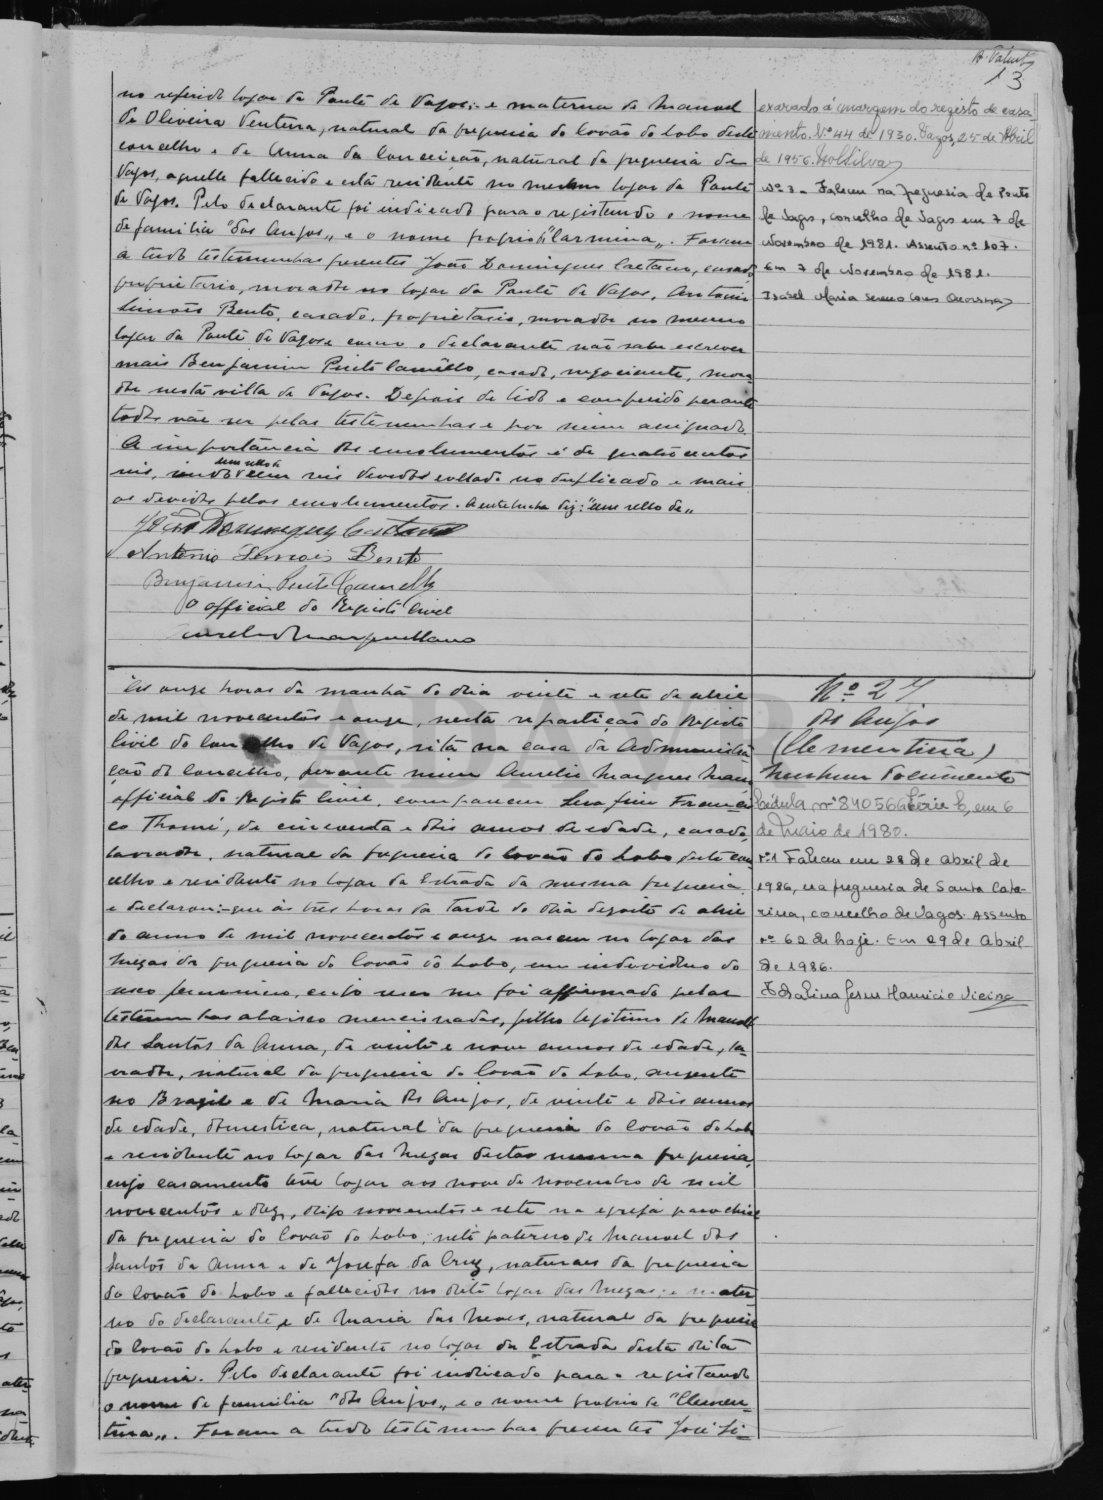 13
no referido logar da Ponte de Vagos; e materna de Manuel
de Oliveira Ventura, natural da freguesia do Covão do Lobo deste
concelho e de Anna da Conceição, natural da freguesia de
Vagos, aquelle fallecido e esta residente no mesmo logar da Ponte
de Vagos. Pelo declarante foi indicado para o registando o nome
de familia "dos Anjos" e o nome proprio "Carmina". Foram
a tudo testemunhas presentes João Domingues Caetano, casado,
proprietario, morador no logar da Ponte de Vagos, Antonio
Simões Bento, casado, proprietario, morador no mesmo
logar da Ponte de Vagos e como o declarante não sabe escrever
mais Benjamim Pinto Camêllo, casado, negociante, mora-
dor nesta villa de Vagos. Depois de lido e conferido perante
todos vae ser pelas testemunhas e por mim assignado.
A importancia dos emolumentos é de quatrocentos
reis, sendo cem reis devidos collado no duplicado e mais
um sello de
os devidos pelos emolumentos. A entrelinha diz: "um sello de"
João Domingues Caetano
Antonio Simões Bento
Benjamim Pinto Camello
O official do Registo Civil
exarado á margem do registo de casa-
mento. Nº 44 de 1930. Vagos, 25 de Abril
de 1956.
Nº 3 - Faleceu na freguesia de Ponte
de Vagos, concelho de Vagos em 7 de
Novembro de 1981. Assento nº 107.
Em 7 de Novembro de 1981.
Isabel Maria
Ás onze horas da manhã do dia vinte e sete de abril
de mil novecentos e onze, nesta repartição do Registo
Civil do concelho de Vagos, sita na casa da Administra-
ção do Concelho, perante mim Aurelio Marques Mano
official do Registo Civil, compareceu Serafim Francis-
co Thomé, de cincoenta e dois annos de edade, casado,
lavrador, natural da freguesia do Covão do Lobo deste con-
celho e residente no logar da Estrada da mesma freguesia,
e declarou:-que ás tres horas da tarde do dia dezoito de abril
do anno de mil novecentos e onze nasceu no logar das
Mezas da freguesia do Covão do Lobo, um individuo do
sexo femenino, cujo sexo me foi affirmado pelas
testemunhas abaixo mencionadas, filho legitimo de Manoel
dos Santos da Anna, de vinte e nove annos de edade, la-
vrador, natural da freguesia do Covão do Lobo, ausente
no Brazil e de Maria dos Anjos, de vinte e dois annos
de edade, domestica, natural da freguesia do Covão do Lobo
e residente no logar das Mezas desta mesma freguesia,
cujo casamento teve logar aos nove de novembro de mil
novecentos e dez, digo novecentos e sete na egreja parochial
da freguesia do Covão do Lobo; neto paterno de Manoel dos
Santos da Anna e de Josefa da Cruz, naturaes da freguesia
do Covão do Lobo e fallecidos no dito logar das Mezas; e mater-
no do declarante e de Maria das Neves, natural da freguesia
do Covão do Lobo e residente no logar da Estrada desta dita
freguesia. Pelo declarante foi indicado para o registando
o nome de familia "dos Anjos" e o nome proprio de "Clemen-
tina". Foram a tudo testemunhas presentes José Si-
Nº 27
dos Anjos
(Clementina)
Nenhum documento
Cédula nº 840566 Série b, em 6
de Maio de 1980.
nº1 Faleceu em 28 de abril de
1986, na freguesia de Santa Cata-
rina, concelho de Vagos. Assento
nº 62 de hoje. Em 29 de Abril
de 1986.